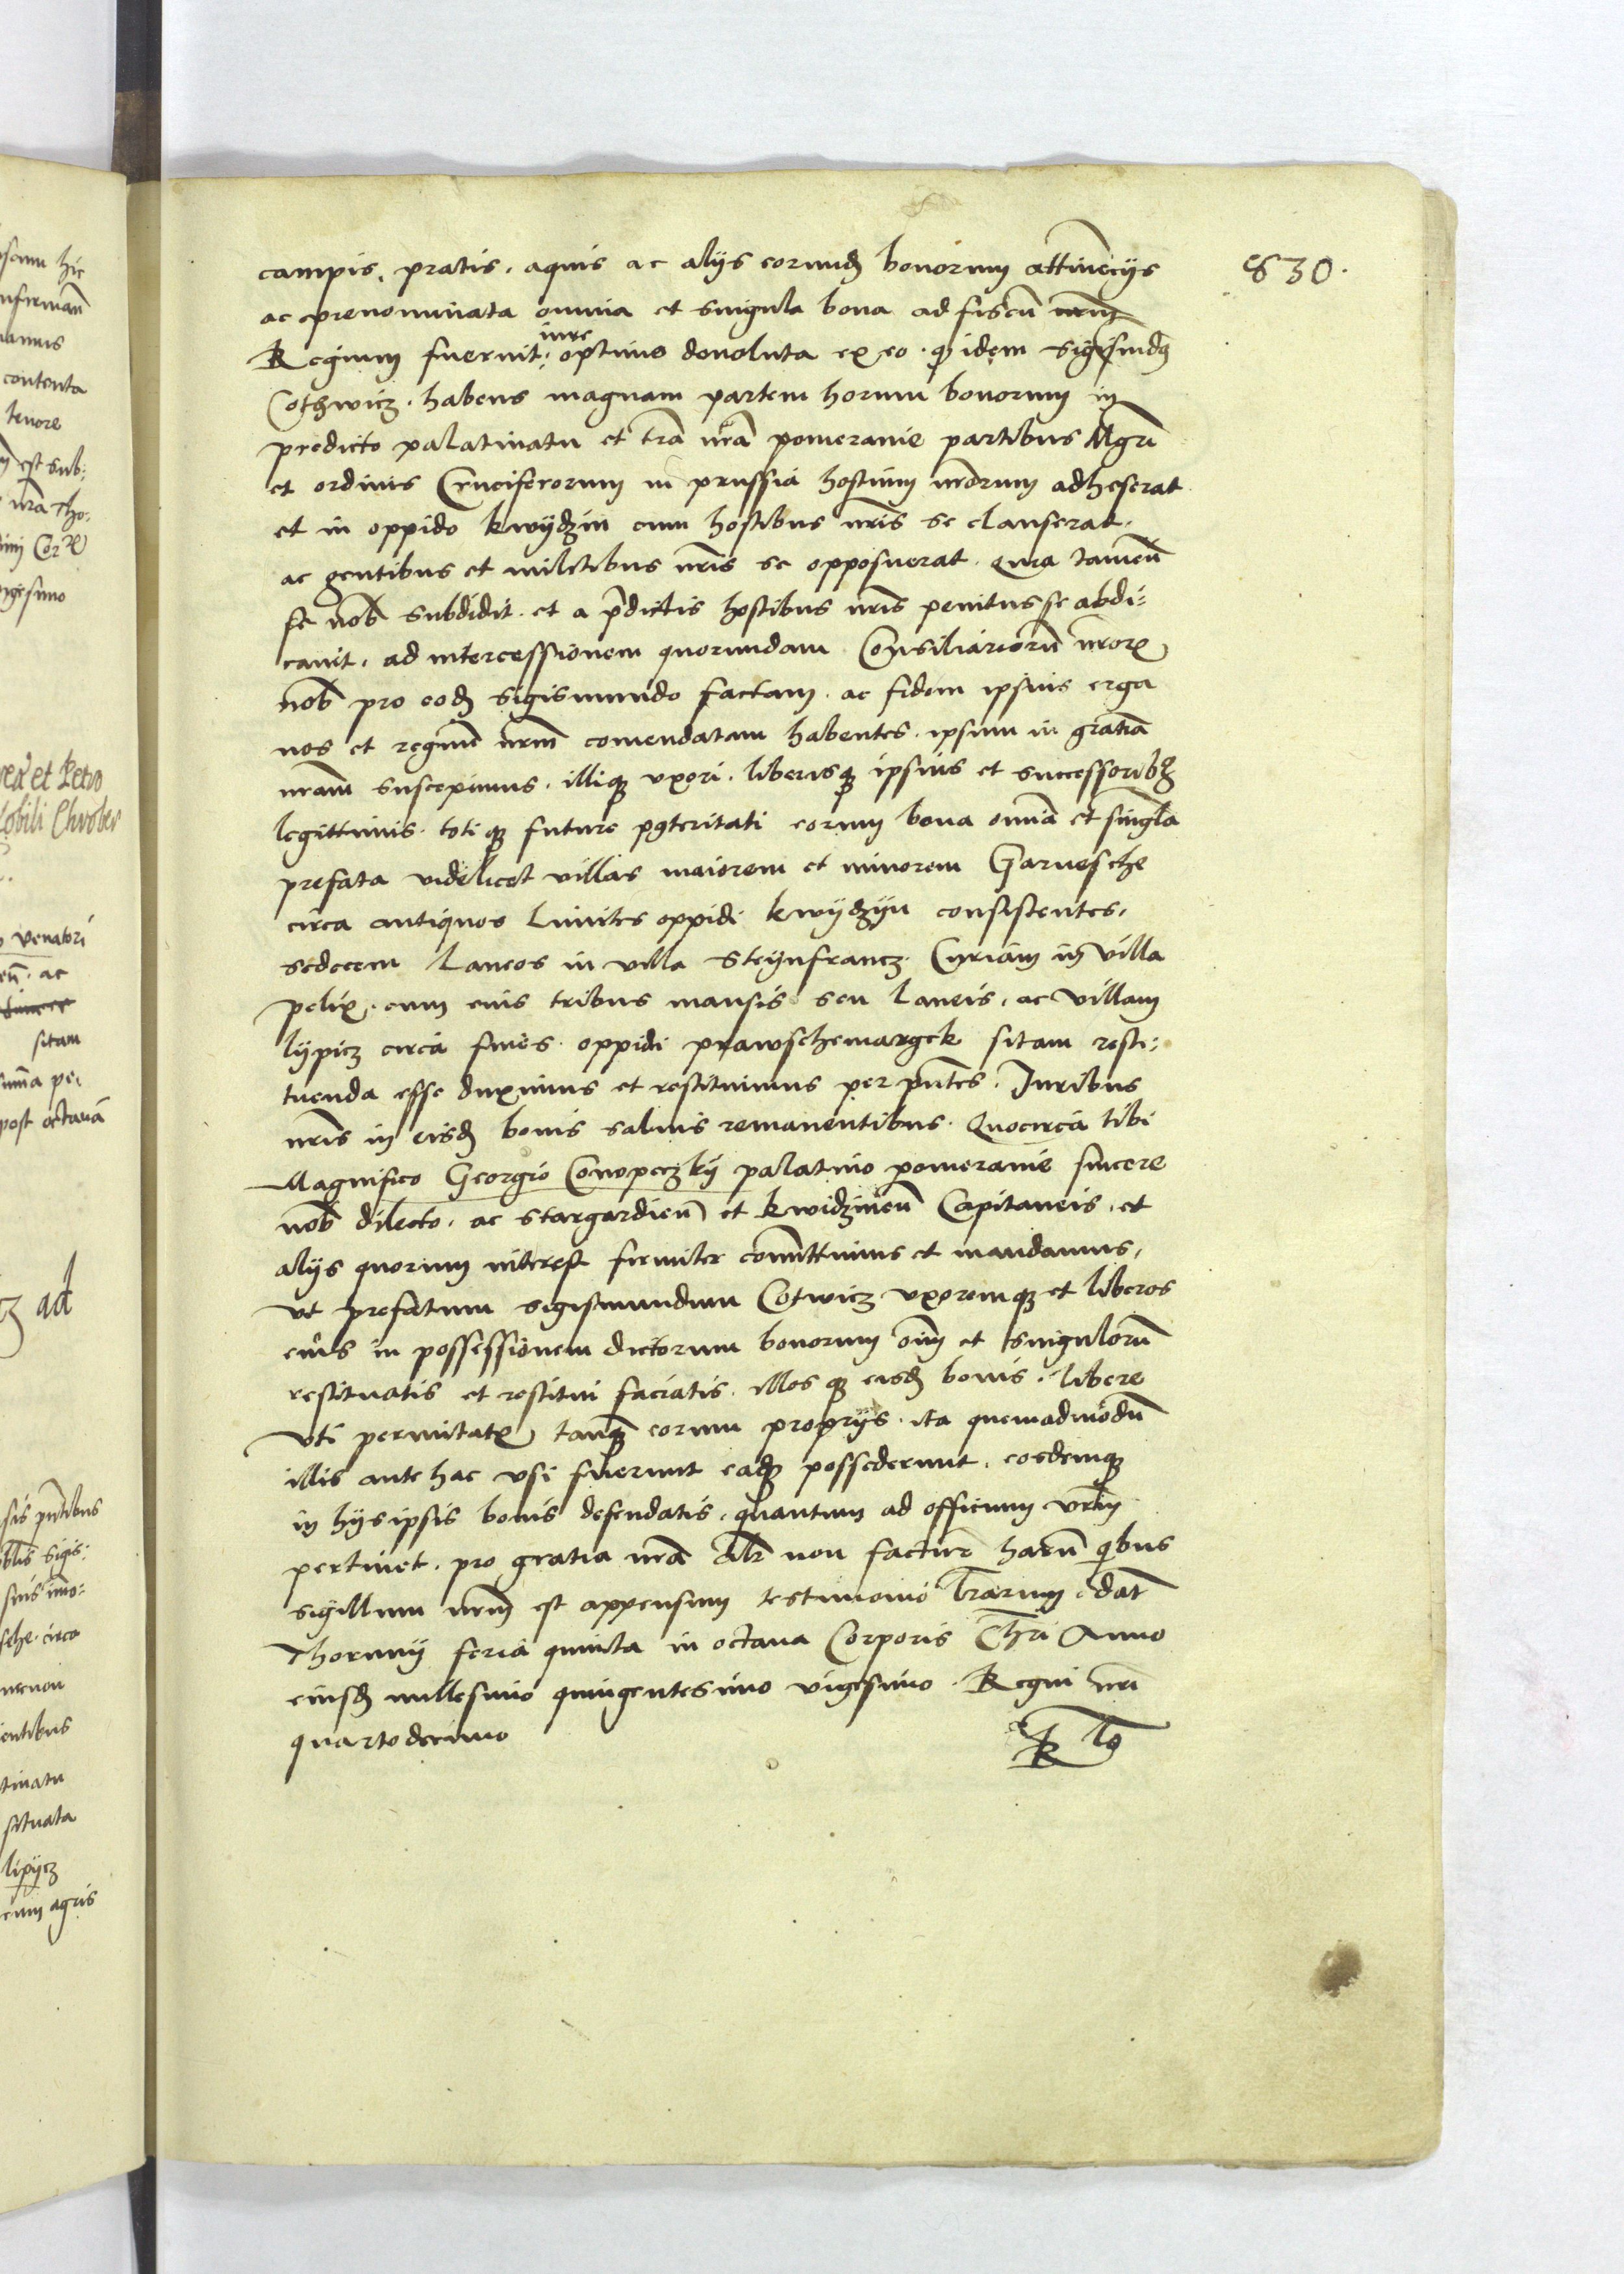 830.
campis. pratis. aquis ac alijs eorundẽ bonorum attinẽcijs
ac prenominata omnia et singula bona ad fiscũ nr̃m
Regium fuerint iure optimo devoluta ex eo. qꝫ idem Sigismũdꝰ
Cothwicz. habens magnam partem horum bonorum in
predicto palatinatu et trã nr̃a pomeranie partibus Mgr̃i
et ordinis Cruciferorum in prussia hostium nr̃orum adheserat
et in oppido kwydzin cum hostibus nr̃is se clauserat.
ac gentibus et militibus nr̃is se opposuerat. Quia tamen
se nob̃ subdidit. et a p̃dictis hostibus nr̃is penitus se abdi:
cavit. ad intercessionem quorundam Consiliariorũ nr̃oꝝ
nob̃ pro eodẽ Sigismundo factam. ac fidem ipsius erga
nos et regnũ nr̃m comendatam habentes. ipsum in gratiã
nr̃am suscepimus. illiqꝫ uxori. liberisqꝫ ipsius et successoribꝫ
legittimis. totiqꝫ future posteritati eorum bona omnia et singl̃a
prefata videlicet villas maiorem et minorem Garnesche
circa antiquos limites oppidi kwydzyn consistentes.
sedecem laneos in villa Steynfrancz. Curiam in villa
pelix. cum eius tribus mansis seu laneis. ac villam
lypicz circa fines oppidi prawschemargek sitam resti:
tuenda esse duximus et restituimus per pñtes. Iuribus
nr̃is in eisdẽ bonis salvis remanentibus. Quocirca tibi
Magnifico Georgio Conopeczky palatino pomeranie sincere
nob̃ dilecto. ac stargardieñ et kwidzineñ Capitaneis. et
alijs quorum interest firmiter com̃ittimus et mandamus.
ut prefatum Sigismundum Cotwicz uxoremqꝫ et liberos
eius in possessionem dictorum bonorum oĩm et singulorũ
restituatis et restitui faciatis. illosqꝫ eisdẽ bonis. libere
uti permitatꝭ tanqꝫ eorum proprijs. ita quemadmodũ
illis ante hac usi fuerunt eaqꝫ possederunt. eosdemqꝫ
in hijs ipsis bonis defendatis. quantum ad officium vr̃m
pertinet. pro gratia nr̃a alr̃ non facturi harũ qͥbus
sigillum nr̃m est appensum testimonio l̃rarum dat̃
Thorunij feria quinta in octava Corporis Chr̃i Anno
eiusdẽ millesimo quingentesimo vigesimo. Regni nr̃i
quartodecimo
contenta
tenore
venatori
ac
sitam
post octavã
ad
situata
lipijcz
cum agris